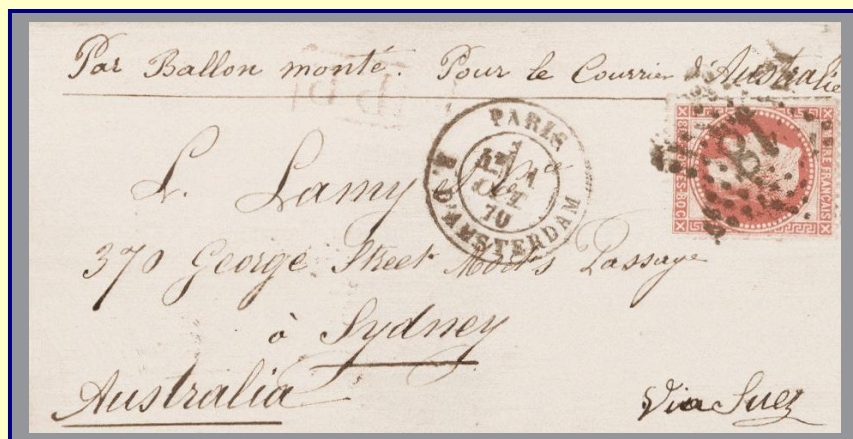 Par Ballon monté. Pour le Courrier d'Australie
PARIS
1
OCT
70
R. D'AMSTERDAM
18
FRANÇAIS
L. Lamy et Cie
370 George Street Moore's Passage
à Sydney
Australia
Via Suez